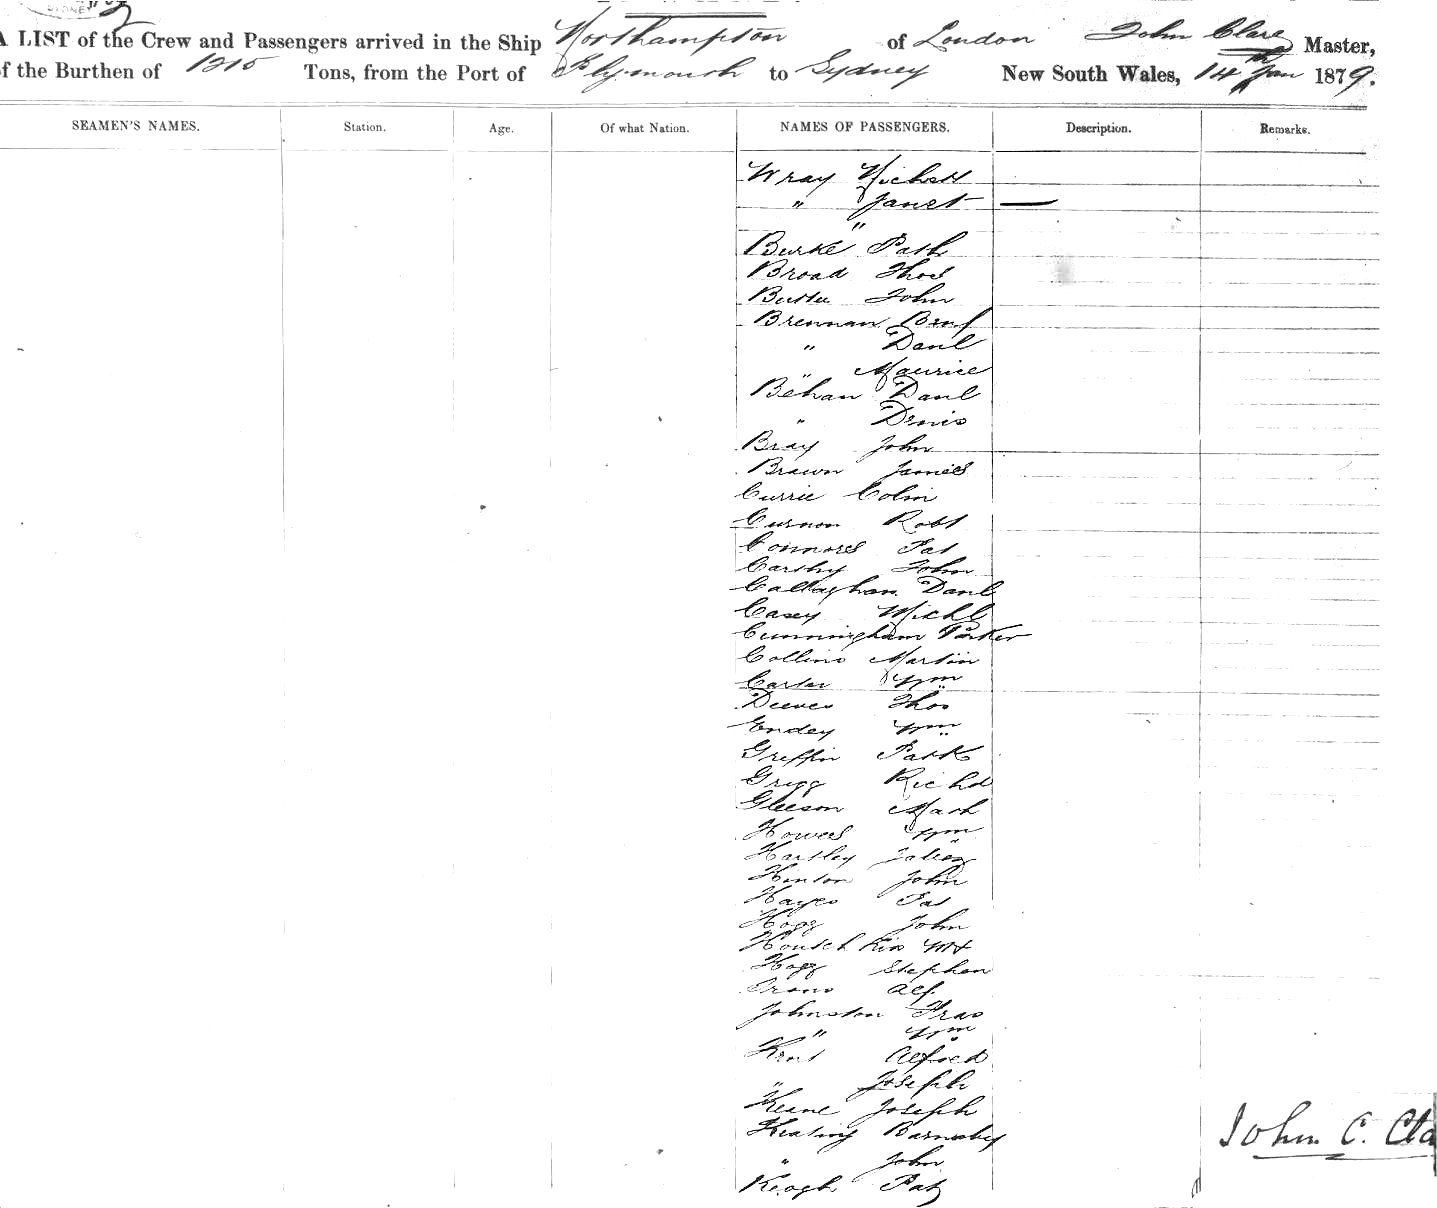 SYDNEY
A LIST of the Crew and Passengers arrived in the Ship Northampton of London John Clare Master,
of the Burthen of 1215 Tons, from the Port of Plymouth to Sydney New South Wales, 14th Jan 1879.
SEAMEN'S NAMES. Station. Age. Of what Nation. NAMES OF PASSENGERS. Description. Remarks.
Wray Michell
" Janet —
"
Burke Patk
Broad Thos
Butler John
Brennan Benj
" Danl
Maurice
Behan " Danl
" Denis
Bray John
Brawn James
Currie Colin
Curnon Robt
Connors Pat
Carthy John
Callaghan Danl
Casey Michl
Cunningham Parker
Collins Martin
Carter Wm
Deeves Thos
Endey Wm
Griffin Patk
Grigg Richd
Gleeson Mark
Howes Wm
Hartley
Hinton John
Hayes Pat
Hogg John
Wm
Hogg Stephen
Alf.
Johnston Fras
" Wm
Kent Alfred
" Joseph
Keane Joseph
Keating Barnaby
" John
Keogh Pat
John C. Cla